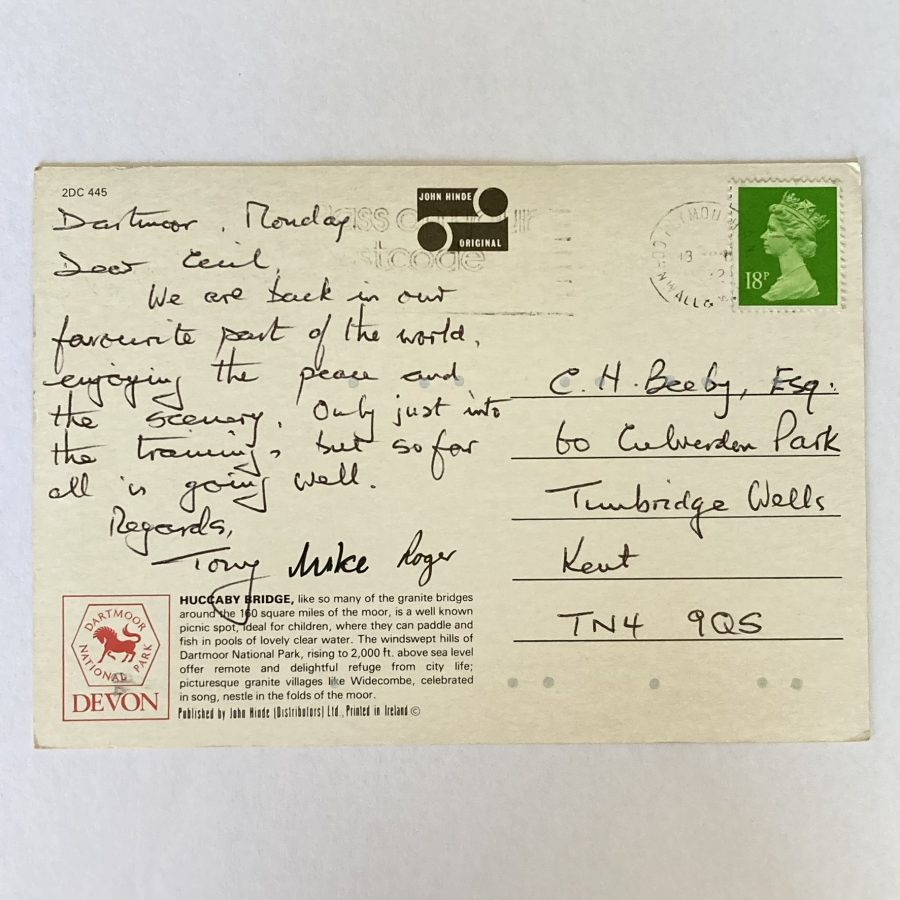 2DC 445
JOHN HINDE
ORIGINAL
18P
Dartmoor, Monday
Dear Cecil,
We are back in our
favourite part of the world,
enjoying the peace and
the scenery. Only just into
the training, but so far
all is going well.
Regards,
Tony Mike Roger
C. H. Beeby, Esq.
60 Culverden Park
Tunbridge Wells
Kent
TN4 9QS
DARTMOOR
NATIONAL PARK
DEVON
HUCCABY BRIDGE, like so many of the granite bridges
around the 160 square miles of the moor, is a well known
picnic spot, ideal for children, where they can paddle and
fish in pools of lovely clear water. The windswept hills of
Dartmoor National Park, rising to 2,000 ft. above sea level
offer remote and delightful refuge from city life;
picturesque granite villages like Widecombe, celebrated
in song, nestle in the folds of the moor.
Published by John Hinde (Distributors) Ltd., Printed in Ireland ©